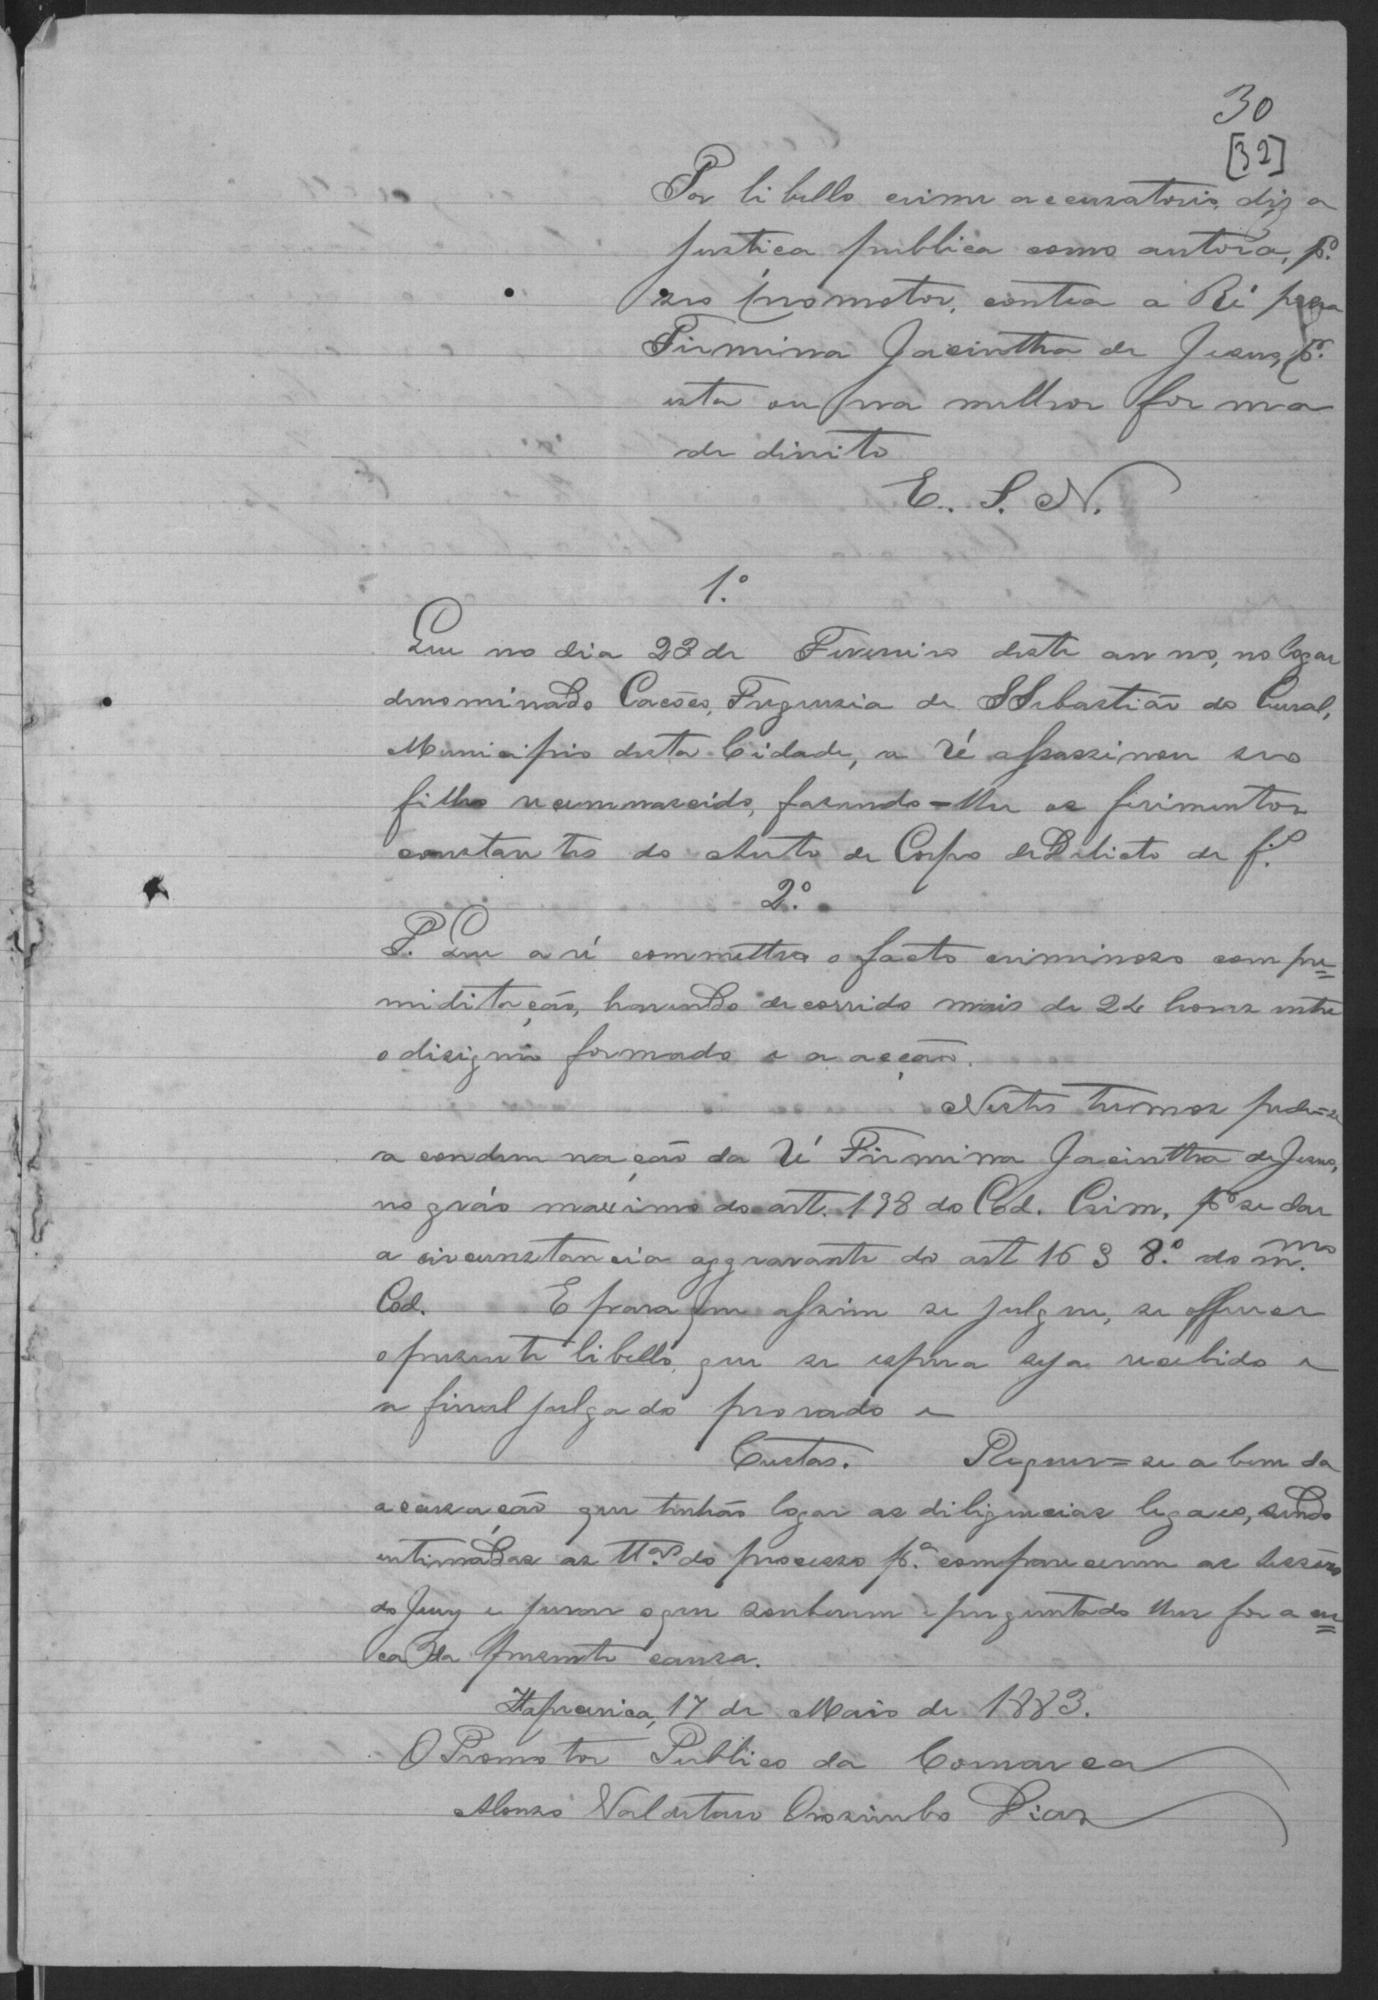 30
[32]
Por libello crime accusatorio, diz a
justiça publica como autora, p.r
seo promotor, contra a Ré presa
Firmina Jacintha de Jesus, p.r
esta ou na melhor forma
de direito
E. S. N.
1.º
Que no dia 23 de Fevereiro deste anno, no logar
denominado Caeões, Freguesia de S Sebastião do Curral,
Municipio desta Cidade, a ré assassinou seo
filho recemnascido, fasendo-lhe os ferimentos
constantes do Auto de Corpo de Delicto de f.
2.º
P. Que a ré commetteo o facto criminoso com pre=
miditação, havendo decorrido mais de 24 horas entre
o disignio formado e a acção.
Nestes termos pede-se
a condemnação da Ré Firmina Jacintha de Jesus,
no gráo maximo do art. 198 do Cod. Crim, p.r se dar
a circunstancia aggravante do art 16 § 8.º do m.mo
Cod. E para que assim se julgue, se offerece
o presente libello, que se espera seja recebido e
a final julgado provado e
Custas. Requer=se a bem da
accusação que tenhão logar as diligencias legaes, sendo
intimadas as tt.as do processo p.a comparecerem as sessões
do Jury e jurar o que souberem e perguntado lhes for a cer=
ca da presente causa.
Itapecerica, 17 de Maio de 1883.
O Promotor Publico da Comarca
Alonso Orosimbo Dias